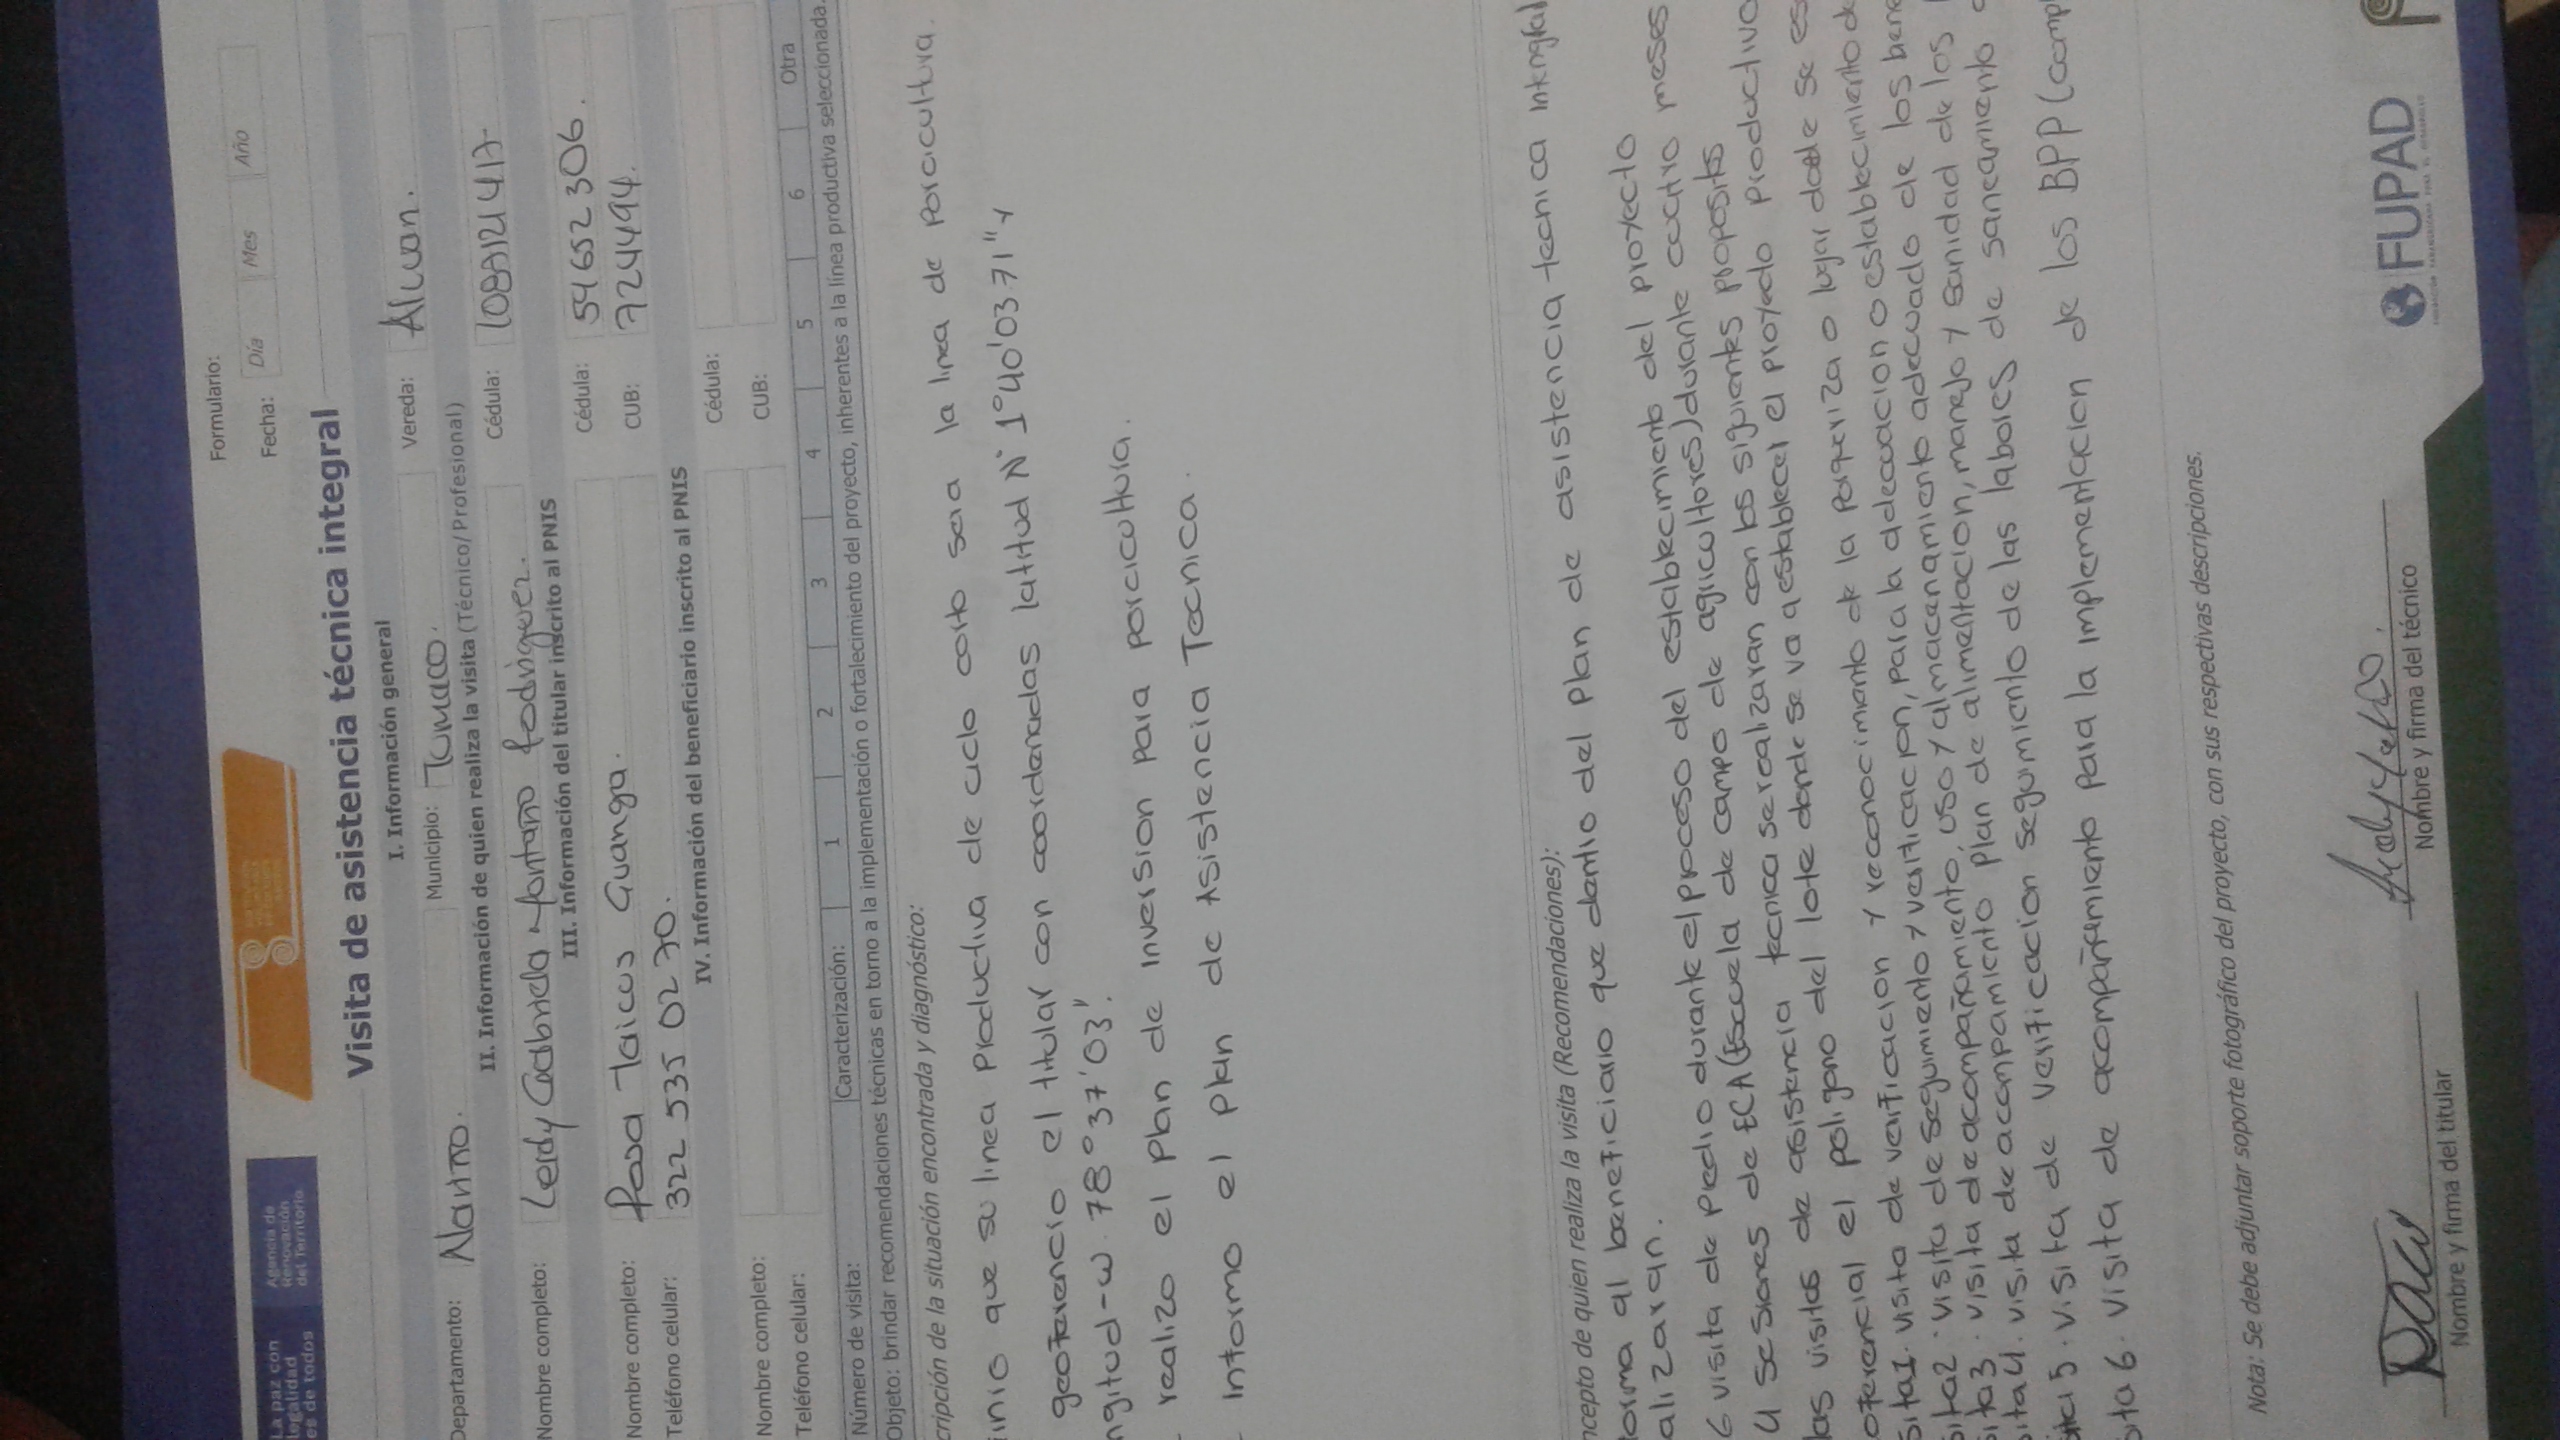 La paz con
legalidad
es de todos
Agencia de
Renovación
del Territorio
Formulario:
Fecha: Día Mes Año
Visita de asistencia técnica integral
I. Información general
Departamento: Nariño. Municipio: Tumaco. Vereda:
II. Información de quien realiza la visita (Técnico/ Profesional)
Nombre completo: Leidy Gabriela Montaño Rodriguez. Cédula:
III. Información del titular inscrito al PNIS
Nombre completo: Rosa Taicus Guanga. Cédula: 59652306.
Teléfono celular: 322 535 0270. CUB: 7244494.
IV. Información del beneficiario inscrito al PNIS
Nombre completo: Cédula:
Teléfono celular: CUB:
Número de visita: Caracterización: 1 2 3 4 5 6 Otra
Objeto: brindar recomendaciones técnicas en torno a la implementación o fortalecimiento del proyecto, inherentes a la línea productiva seleccionada.
cripción de la situación encontrada y diagnóstico:
inio que su linea productiva de ciclo corto sera la linea de porcicultura.
georeferencio el titular con coordenadas latitud N 1°40'03.71" y
ngitud-w. 78°37'03".
realizo el plan de inversion para porcicultura.
informo el plan de Asistencia Tecnica.
ncepto de quien realiza la visita (Recomendaciones):
forma al beneficiario que dentro del plan de asistencia tecnica integral
alizaran.
6 visita de predio durante el proceso del establecimiento del proyecto
4 sesiones de ECA (Escuela de campo de agricultores) durante cuatro meses
las visitas de asistencia tecnica se realizaran con los siguientes propositos
oferencial el poligono del lote donde se va a establecer el proyecto productivo
sita1. visita de verificacion y reconocimiento de la porqueriza o lugar donde se es
sita2. visita de seguimiento y verificacion, para la adecuacion o establecimiento de
sita3. visita de acompañamiento, uso y almacenamiento adecuado de los bene
sita4. visita de acompamiento plan de alimentacion, manejo y sanidad de los
sita5. visita de verificacion seguimiento de las labores de saneamiento
sita6. visita de acompañamiento para la implementacion de los BPP (comp
Nota: Se debe adjuntar soporte fotográfico del proyecto, con sus respectivas descripciones.
Nombre y firma del titular
Nombre y firma del técnico
FUPAD